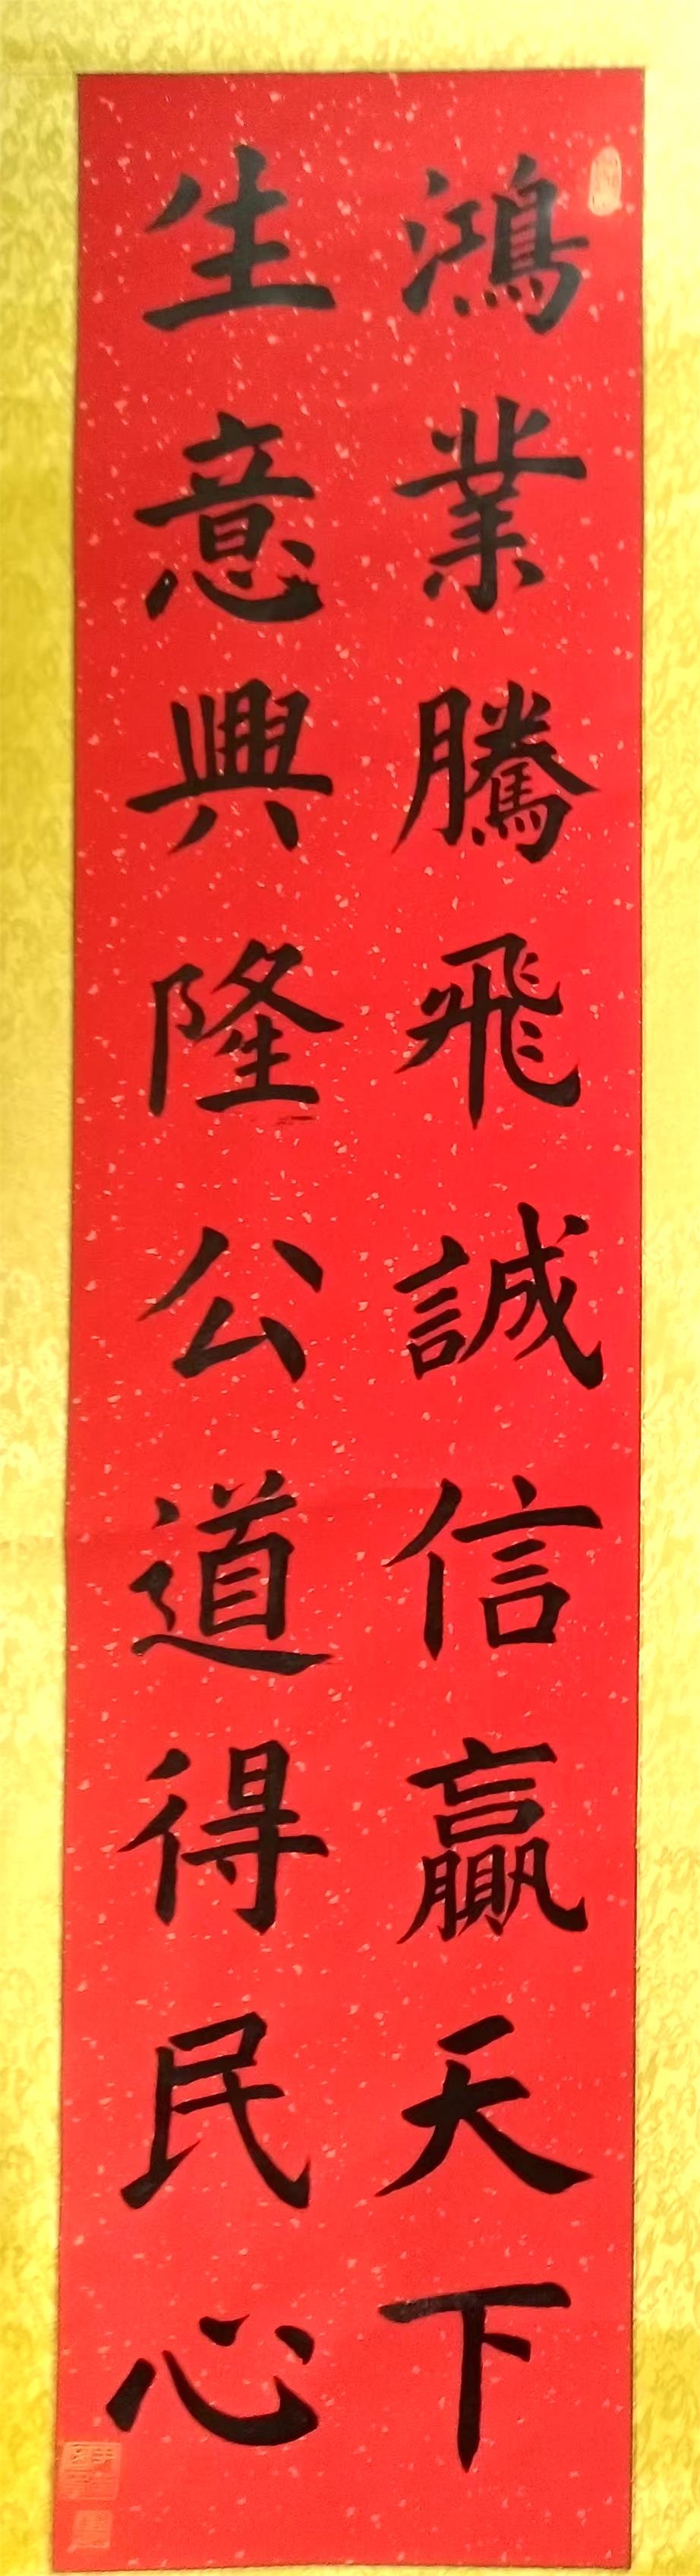 鴻業騰飛誠信贏天下
生意興隆公道得民心